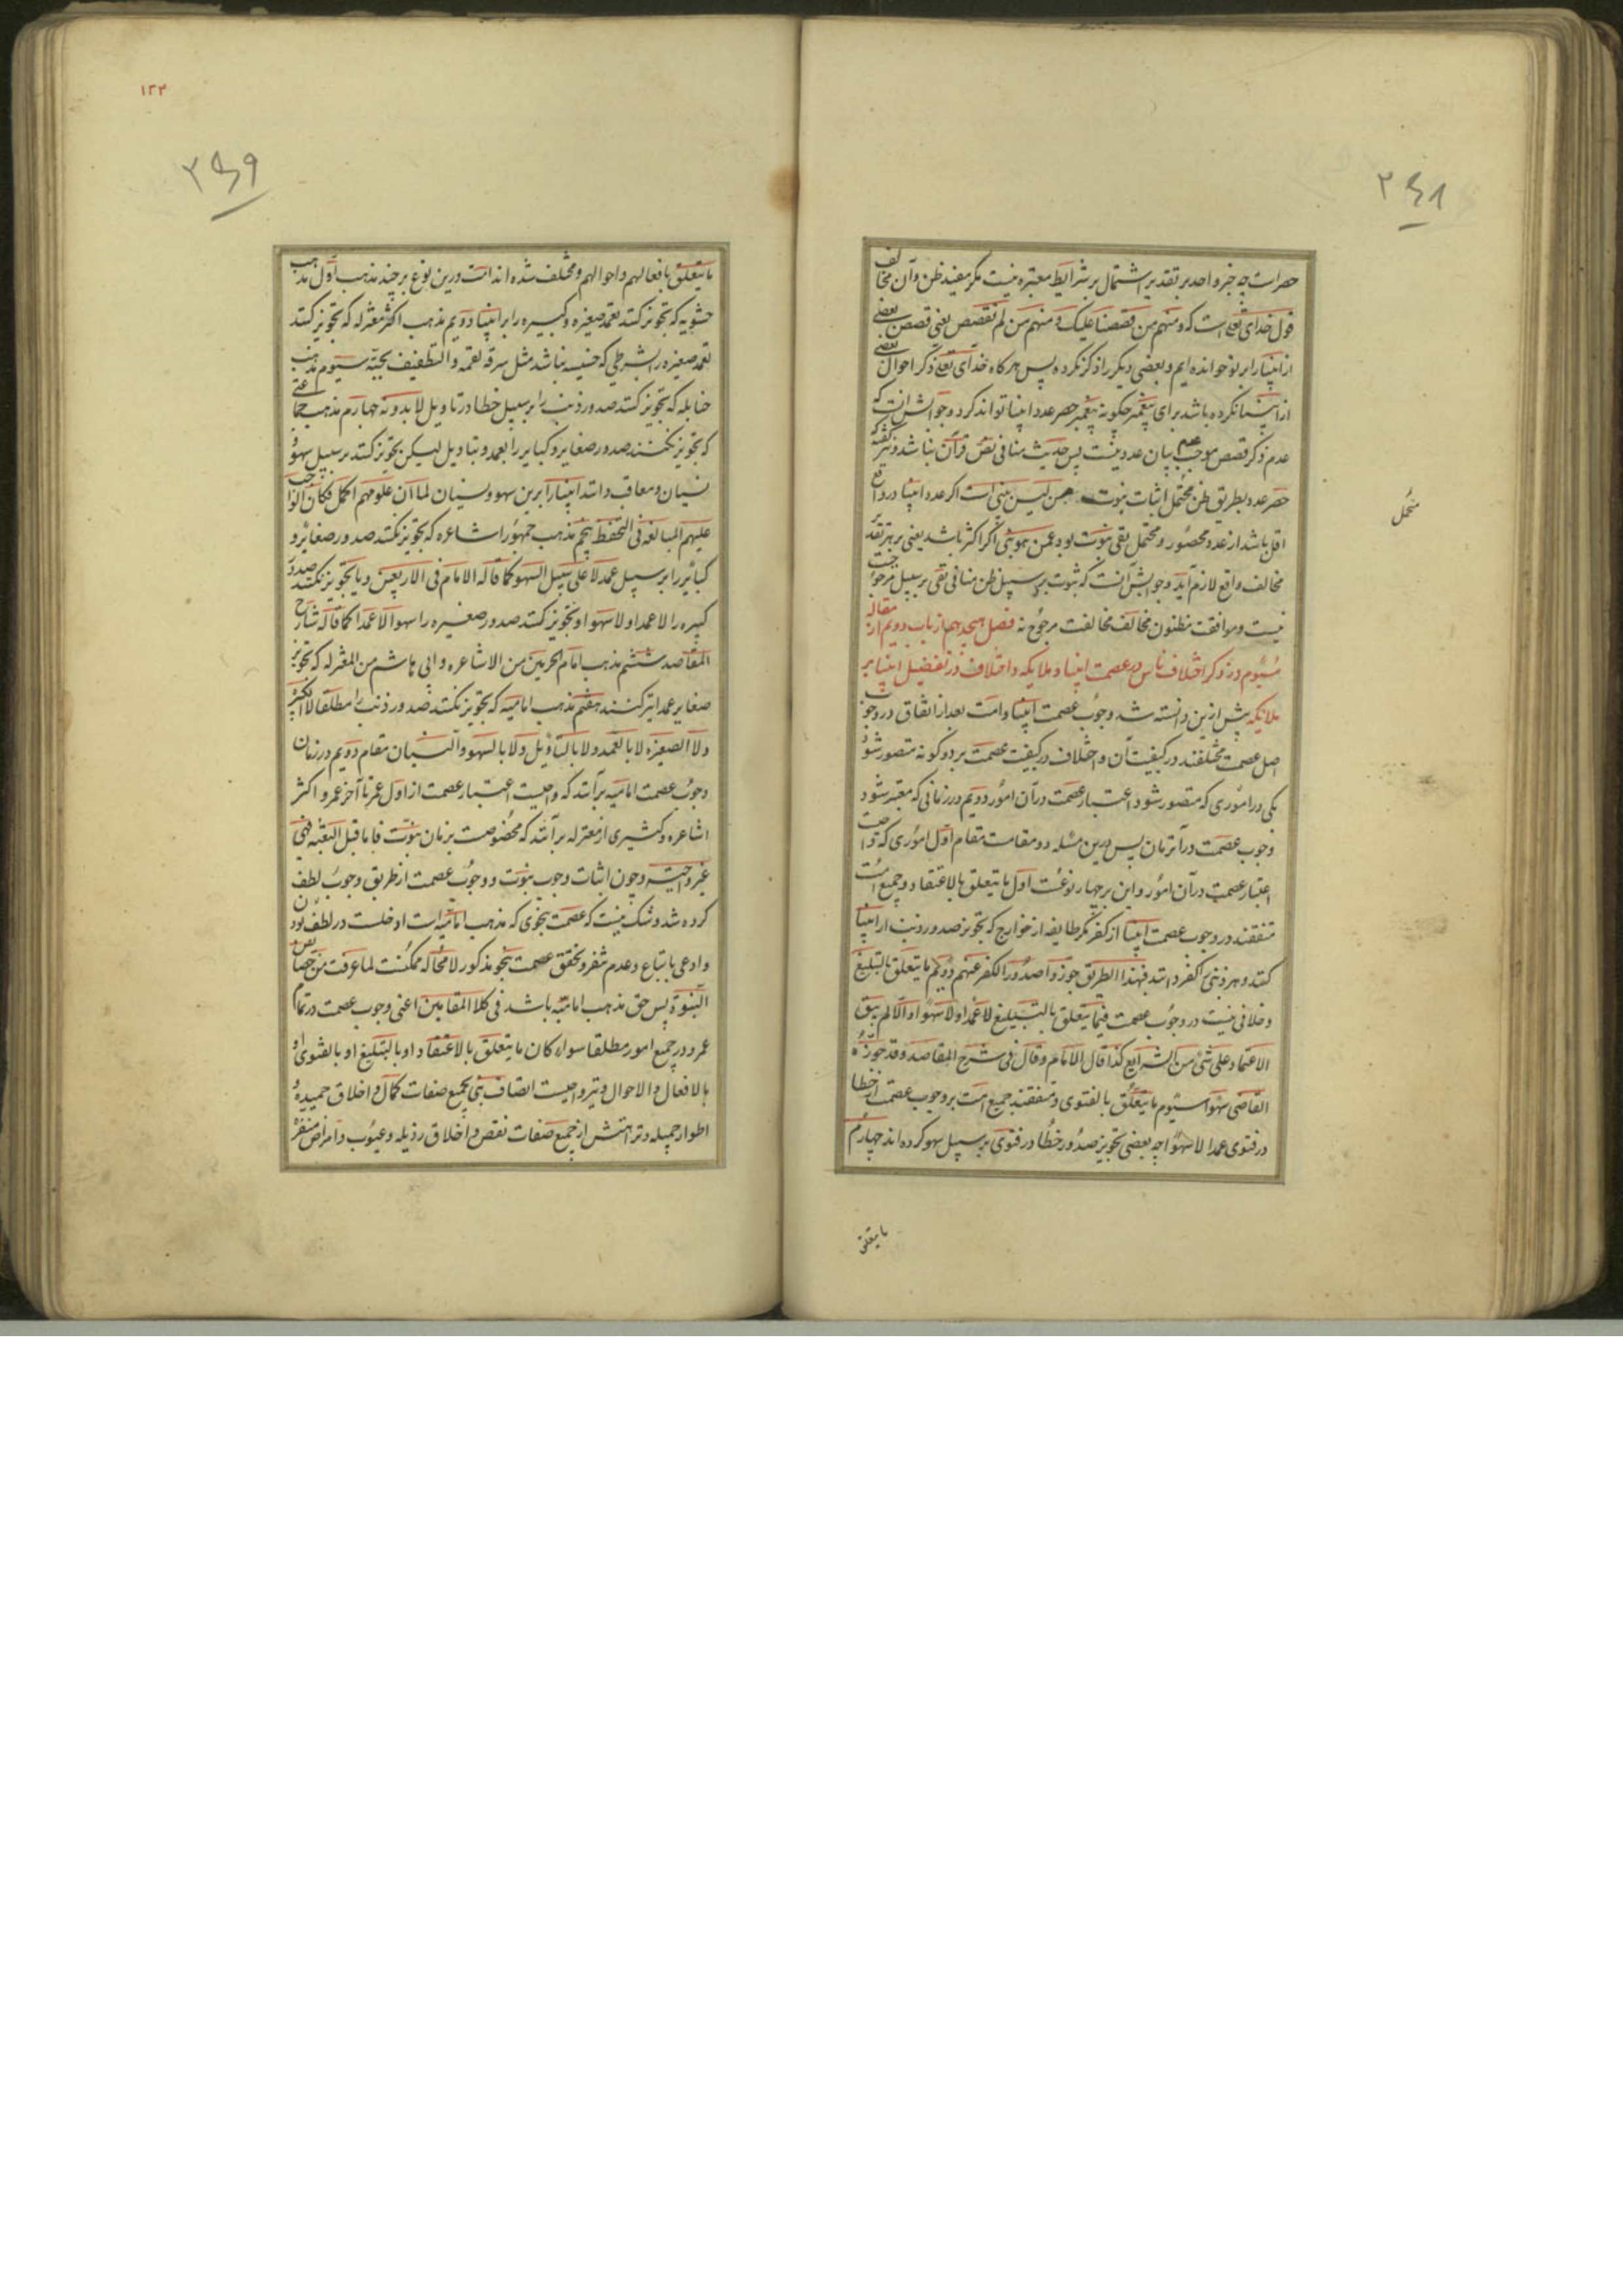 ۲۴۸
حصرست چه خبر واحد بر تقدیر اشتمال بر شرایط معتبره نیست مکر مفید ظن وآن مخالف
قول خدای تعالی است که ومنهم من قصصنا علیک ومنهم من لم نقصص یعنی قصص بعضی
از انبیا را بر تو خوانده ایم وبعضی دیکر را ذکر نکرده پس هر کاه خدآی تعالی ذکر احوال بعضی
از انبیا نکرده باشد برای پیغمبر چکونه پیغمبر حصر عدد انبیا تواند کرد وجوابش آنست که
عدم ذکر قصص موجب عدم بیان عدد نیست پس حدیث منافی نص قرآن نباشد ونیز کفته که
حصر عدد بطریق ظن محتمل اثبات نبوت من لیس بنبی است اکر عدد انبیا در واقع
محتمل
اقل باشد از عدد محصور ومحتمل نفی نبوت بود عمن هو نبی اکر اکثر باشد یعنی بر هر تقدیر
مخالف واقع لازم آید وجوابش آنست که ثبوت بر سبیل ظن منافی نفی بر سبیل مرجوحیت
نیست وموافقت مظنون مخالف مخالفت مرجوح نه فصل هیجدهم از باب دویم از مقاله
سیوم در ذکر اختلاف ناس در عصمت انبیا وملایکه واختلاف در تفضیل انبیا بر
ملایکه پیش ازین دانسته شد وجوب عصمت انبیا وامت بعد از اتفاق در وجوب
اصل عصمت مختلفند در کیفیت آن واختلاف در کیفیت عصمت بر دو کونه متصور شود
یکی در اموری که متصور شود اعتبار عصمت در آن امور دویم در زمانی که معتبر شود
وجوب عصمت در آنزمان پس درین مسئله دو مقامست مقام اول اموری که واجبست
اعتبار عصمت در آن امور واین بر چهار نوعست اول ما یتعلق بالاعتقاد وجمیع امت
متفقند در وجوب عصمت انبیا از کفر مکر طایفه از خوارج که تجویز صدور ذنب از انبیا
کنند وهر ذنبی را کفر دانند فبهذا الطریق جوزوا صدور الکفر عنهم دویم ما یتعلق بالتبلیغ
وخلافی نیست در وجوب عصمت فیما یتعلق بالتبلیغ لا عمدا ولا سهوا والا لم یبق
الاعتماد علی شئ من الشرایع کذا قال الامام وقال فی شرح المقاصد وقد جوزه
القاضی سهوا سیوم ما یتعلق بالفتوی ومتفقند جمیع امت بر وجوب عصمت از خطا
در فتوی عمدا لا سهوا چه بعضی تجویز صدور خطا در فتوی بر سبیل سهو کرده اند چهارم
ما یتعلق
۱۲۴
۲۴۹
ما یتعلق بافعالهم واحوالهم ومختلف شده اند امت درین نوع بر چند مذهب اول مذهب
حشویه که تجویز کنند تعمد صغیره وکبیره را بر انبیا دویم مذهب اکثر معتزله که تجویز کنند
تعمد صغیره را بشرطی که خسیسه نباشد مثل سرقه لقمه والتطفیف بحبه سیوم مذهب
حنابله که تجویز کنند صدور ذنب را بر سبیل خطا در تاویل لا بدونه چهارم مذهب جماعتی
که تجویز نکنند صدور صغایر وکبایر را بعمد وبتاویل لیکن تجویز کنند بر سبیل سهو و
نسیان ومعاقب دانند انبیا را برین سهو ونسیان لما ان علومهم اکمل فکان الواجب
علیهم المبالغه فی التحفظ پنجم مذهب جمهور اشاعره که تجویز نکنند صدور صغایر و
کبائر را بر سبیل عمد لا علی سبیل السهو کما قاله الامام فی الاربعین ویا تجویز نکنند صدور
کبیره را لا عمدا ولا سهوا وتجویز کنند صدور صغیره را سهوا لا عمدا کما قاله شارح
المقاصد ششم مذهب امام الحرمین من الاشاعره وابی هاشم من المعتزله که تجویز
صغایر عمدا نیز کنند هفتم مذهب امامیه که تجویز نکنند صدور ذنب را مطلقا لا الکبیره
ولا الصغیره لا بالعمد ولا بالتأویل ولا بالسهو والنسیان مقام دویم در زمان
وجوب عصمت امامیه برآنند که واجبست اعتبار عصمت از اول عمر تا آخر عمر واکثر
اشاعره وکثیری از معتزله برآنند که مخصوصست بزمان نبوت فاما قبل البعثه فهی
غیر واجبته وچون اثبات وجوب نبوت ووجوب عصمت از طریق وجوب لطف
کرده شد وشک نیست که عصمت بنحوی که مذهب امامیه است ادخلست در لطف بودن
وادعی باتباع وعدم تنفر وتحقق عصمت بنحو مذکور لا محاله ممکنست لما عرفت من خصائص
النبوة پس حق مذهب امامیه باشد فی کلا المقامین اعنی وجوب عصمت در تمام
عمر ودر جمیع امور مطلقا سواء کان ما یتعلق بالاعتقاد او بالتبلیغ او بالفتوی او
بالافعال والاحوال ونیز واجبست اتصاف نبی بجمیع صفات کمال واخلاق حمیده و
اطوار جمیله ونزاهتش از جمیع صفات نقص واخلاق رذیله وعیوب وامراض منفره